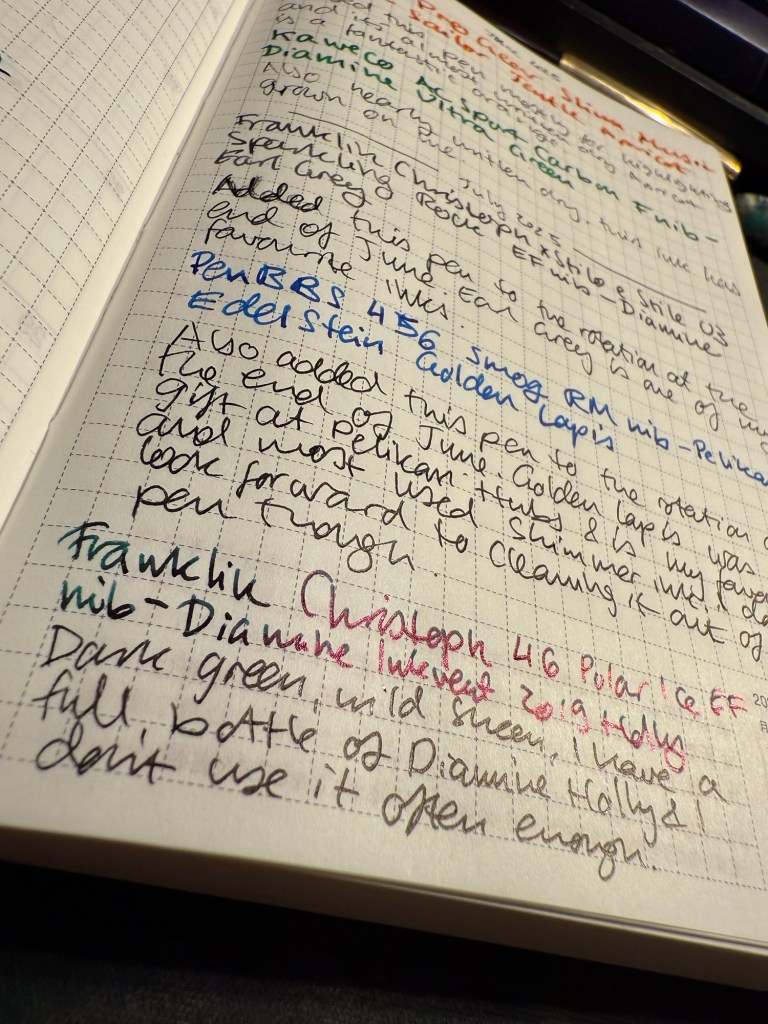 and it's a pen mostly for highlighting
is a fantastic orange
Pro Gear Slim Music
Sailor Jentle Apricot
Kaweco AC Sport Carbon F nib -
Diamine Ultra Green
Also nearly written dry, this ink has
grown on me
July 2025
Franklin Christoph x Stilo e Stile 03
Sparkling Rock EF nib - Diamine
Earl Grey
Added this pen to the rotation at the
end of June. Earl Grey is one of my
favourite inks.
PenBBS 456 Smog RM nib - Pelikan
Edelstein Golden Lapis
Also added this pen to the rotation
the end of June. Golden Lapis was
gift at Pelikan Hubs & is my
and most used shimmer ink. I
look forward to cleaning it out of
pen though.
Franklin Christoph 46 Polar Ice EF
nib - Diamine Inkvent 2019 Holly
Dark green, wild sheen, I have a
full bottle of Diamine Holly & I
dont use it often enough.